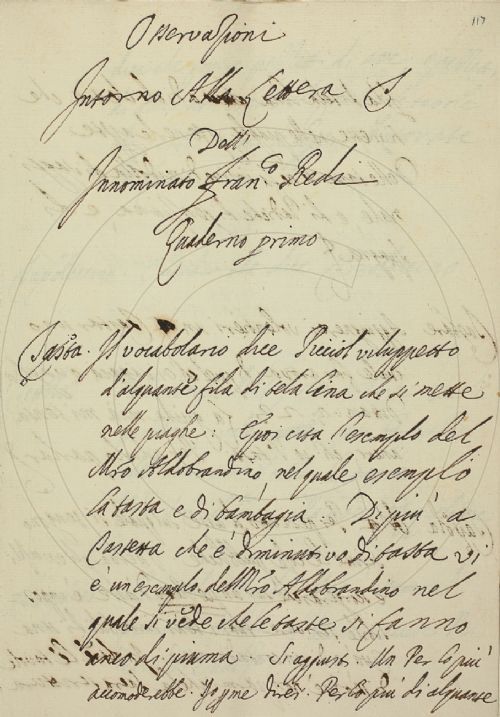 117
Osservazioni
Intorno Alla Lettera T
Dell'
Innominato Fran.co Redi
Quaderno primo
Tasta. Il vocabolario dice Piccol viluppetto
d'alquante fila di tela lina che si mette
nelle piaghe: E poi cita l'esempio del
Mro Aldobrandino, nel quale esempio
la tasta e di bambagia. Di più a
Tastetta che è diminutivo di tasta vi
è un esempio del Mro Aldobrandino nel
quale si vede che le taste si fanno
anco di piuma. Si aggiunt. Un Per lo più
accomoderebbe. Io q.ne direi. Per lo più di alquante